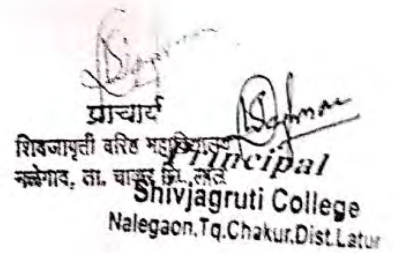 प्राचार्य
शिवजागृती वरिष्ठ महाविद्यालय
नळेगाव, ता. चाकूर जि. लातूर
Principal
Shivjagruti College
Nalegaon,Tq.Chakur.Dist.Latur